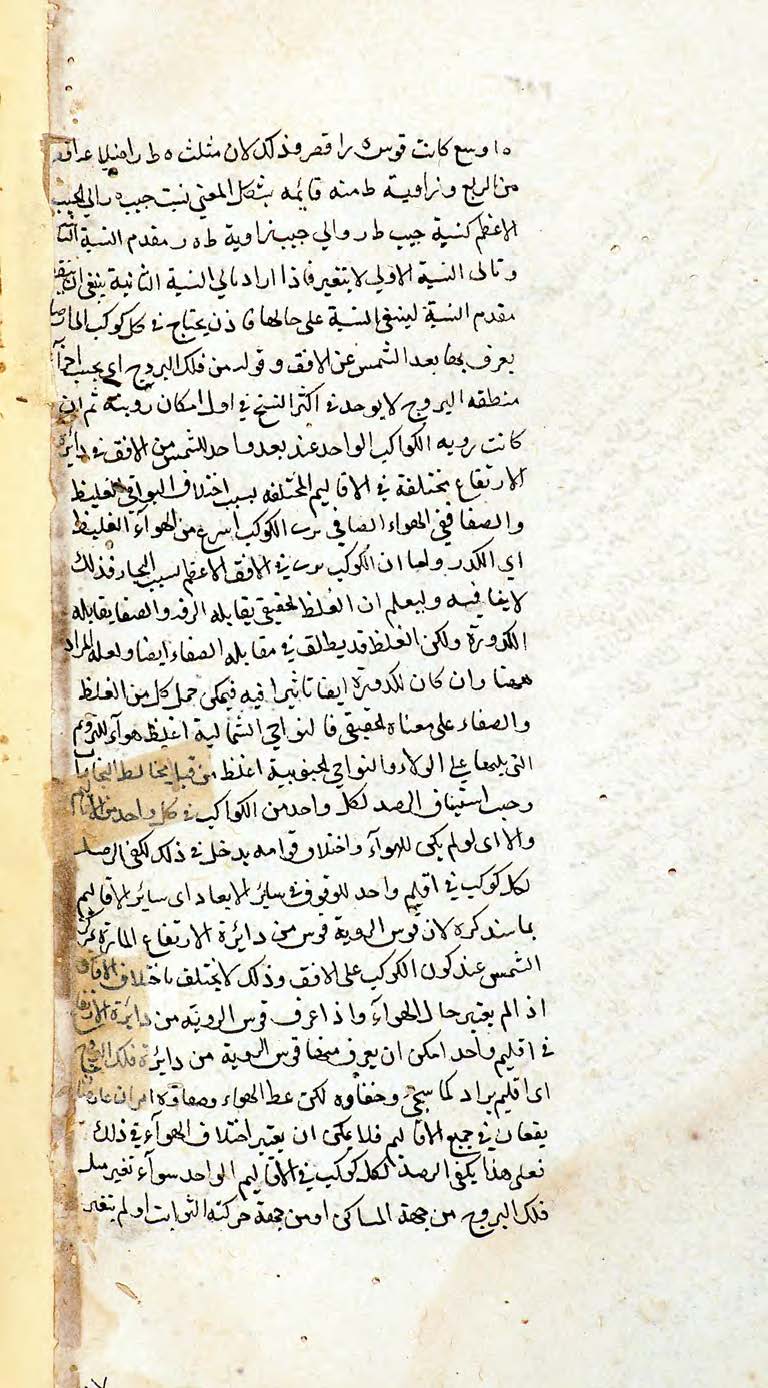 ه ا وسع كانت قوس ه ر اقصر وذلك لان مثلث ه ط ر اضلاعه اقصر
من الربع وزاوية ط منه قائمه بشكل المغني نسبت جيب ه ر الي الجيب
الاعظم كنسبة جيب ط ر والي جيب زاوية ط ه ر مقدم النسبة
وتالى النسبة الاولي لا يتغير فاذا اراد تالي النسبة الثانية ينبغى ان
مقدم النسبة ليبقى النسبة على حالها فاذن يحتاج في كل كوكب الى
يعرف بها بعد الشمس عن الافق وقوله من فلك البروج اي بحسب اجزآ
منطقه البروج لا يوجد في اكثر النسخ في اول امكان رويته ثم ان
كانت رويه الكواكب الواحد عند بعد واحد للشمس من الافق في دائرة
الارتفاع مختلفة في الاقاليم المختلفه بسبب اختلاف الغليظ
والصفا ففي الهواء الصافي يرى الكوكب اسرع من الهوآء الغليظ
اي الكدر واما ان الكوكب يرى في الافق الاعظم لسبب البخار فذلك
لا ينافيه وليعلم ان الغلظ الحقيقي يقابله الرقه والصفا يقابله
الكدورة ولكن الغلظ قد يطلق في مقابله الصفاء ايضا ولعله المراد
ههنا وان كان للكدورة ايضا تاثيرا فيه فيمكن حمل كل من الغلظ
والصفاء على معناه الحقيقي فالنواحي الشمالية اغلظ هوآء
التي يليها على الولاء والنواحي الجنوبية اغلظ من قبل يخالط البخار
وجب استيناف الرصد لكل واحد من الكواكب في كل واحد من الاقاليم
والا اى لو لم يكن للهوآء واختلاف قوامه يدخل في ذلك لكفى الرصد
لكل كوكب في اقليم واحد للوقوف في ساير الابعاد اى ساير الاقاليم
بما سنذكره لان قوس الروية قوس من دايرة الارتفاع المارة بمركز
الشمس عند كون الكوكب على الافق وذلك لا يختلف باختلاف الافاق
اذا لم يعتبر حال الهوآء واذا عرف قوس الروية من دايرة الارتفاع
في اقليم واحد امكن ان يعرف منها قوس الروية من دائرة فلك البروج
اى اقليم يراد كما سيجئ وخفاوه لكن غلظ الهواء وصفاوه امران
يقعان في جميع الاقاليم فلا يمكن ان يعتبر اختلاف الهوآء في ذلك
فعلى هذا يكفى الرصد لكل كوكب في الاقاليم الواحد سوآء تغير ميل
فلك البروج من جهة المساكن او من جهة حركته الثوابت او لم يتغير